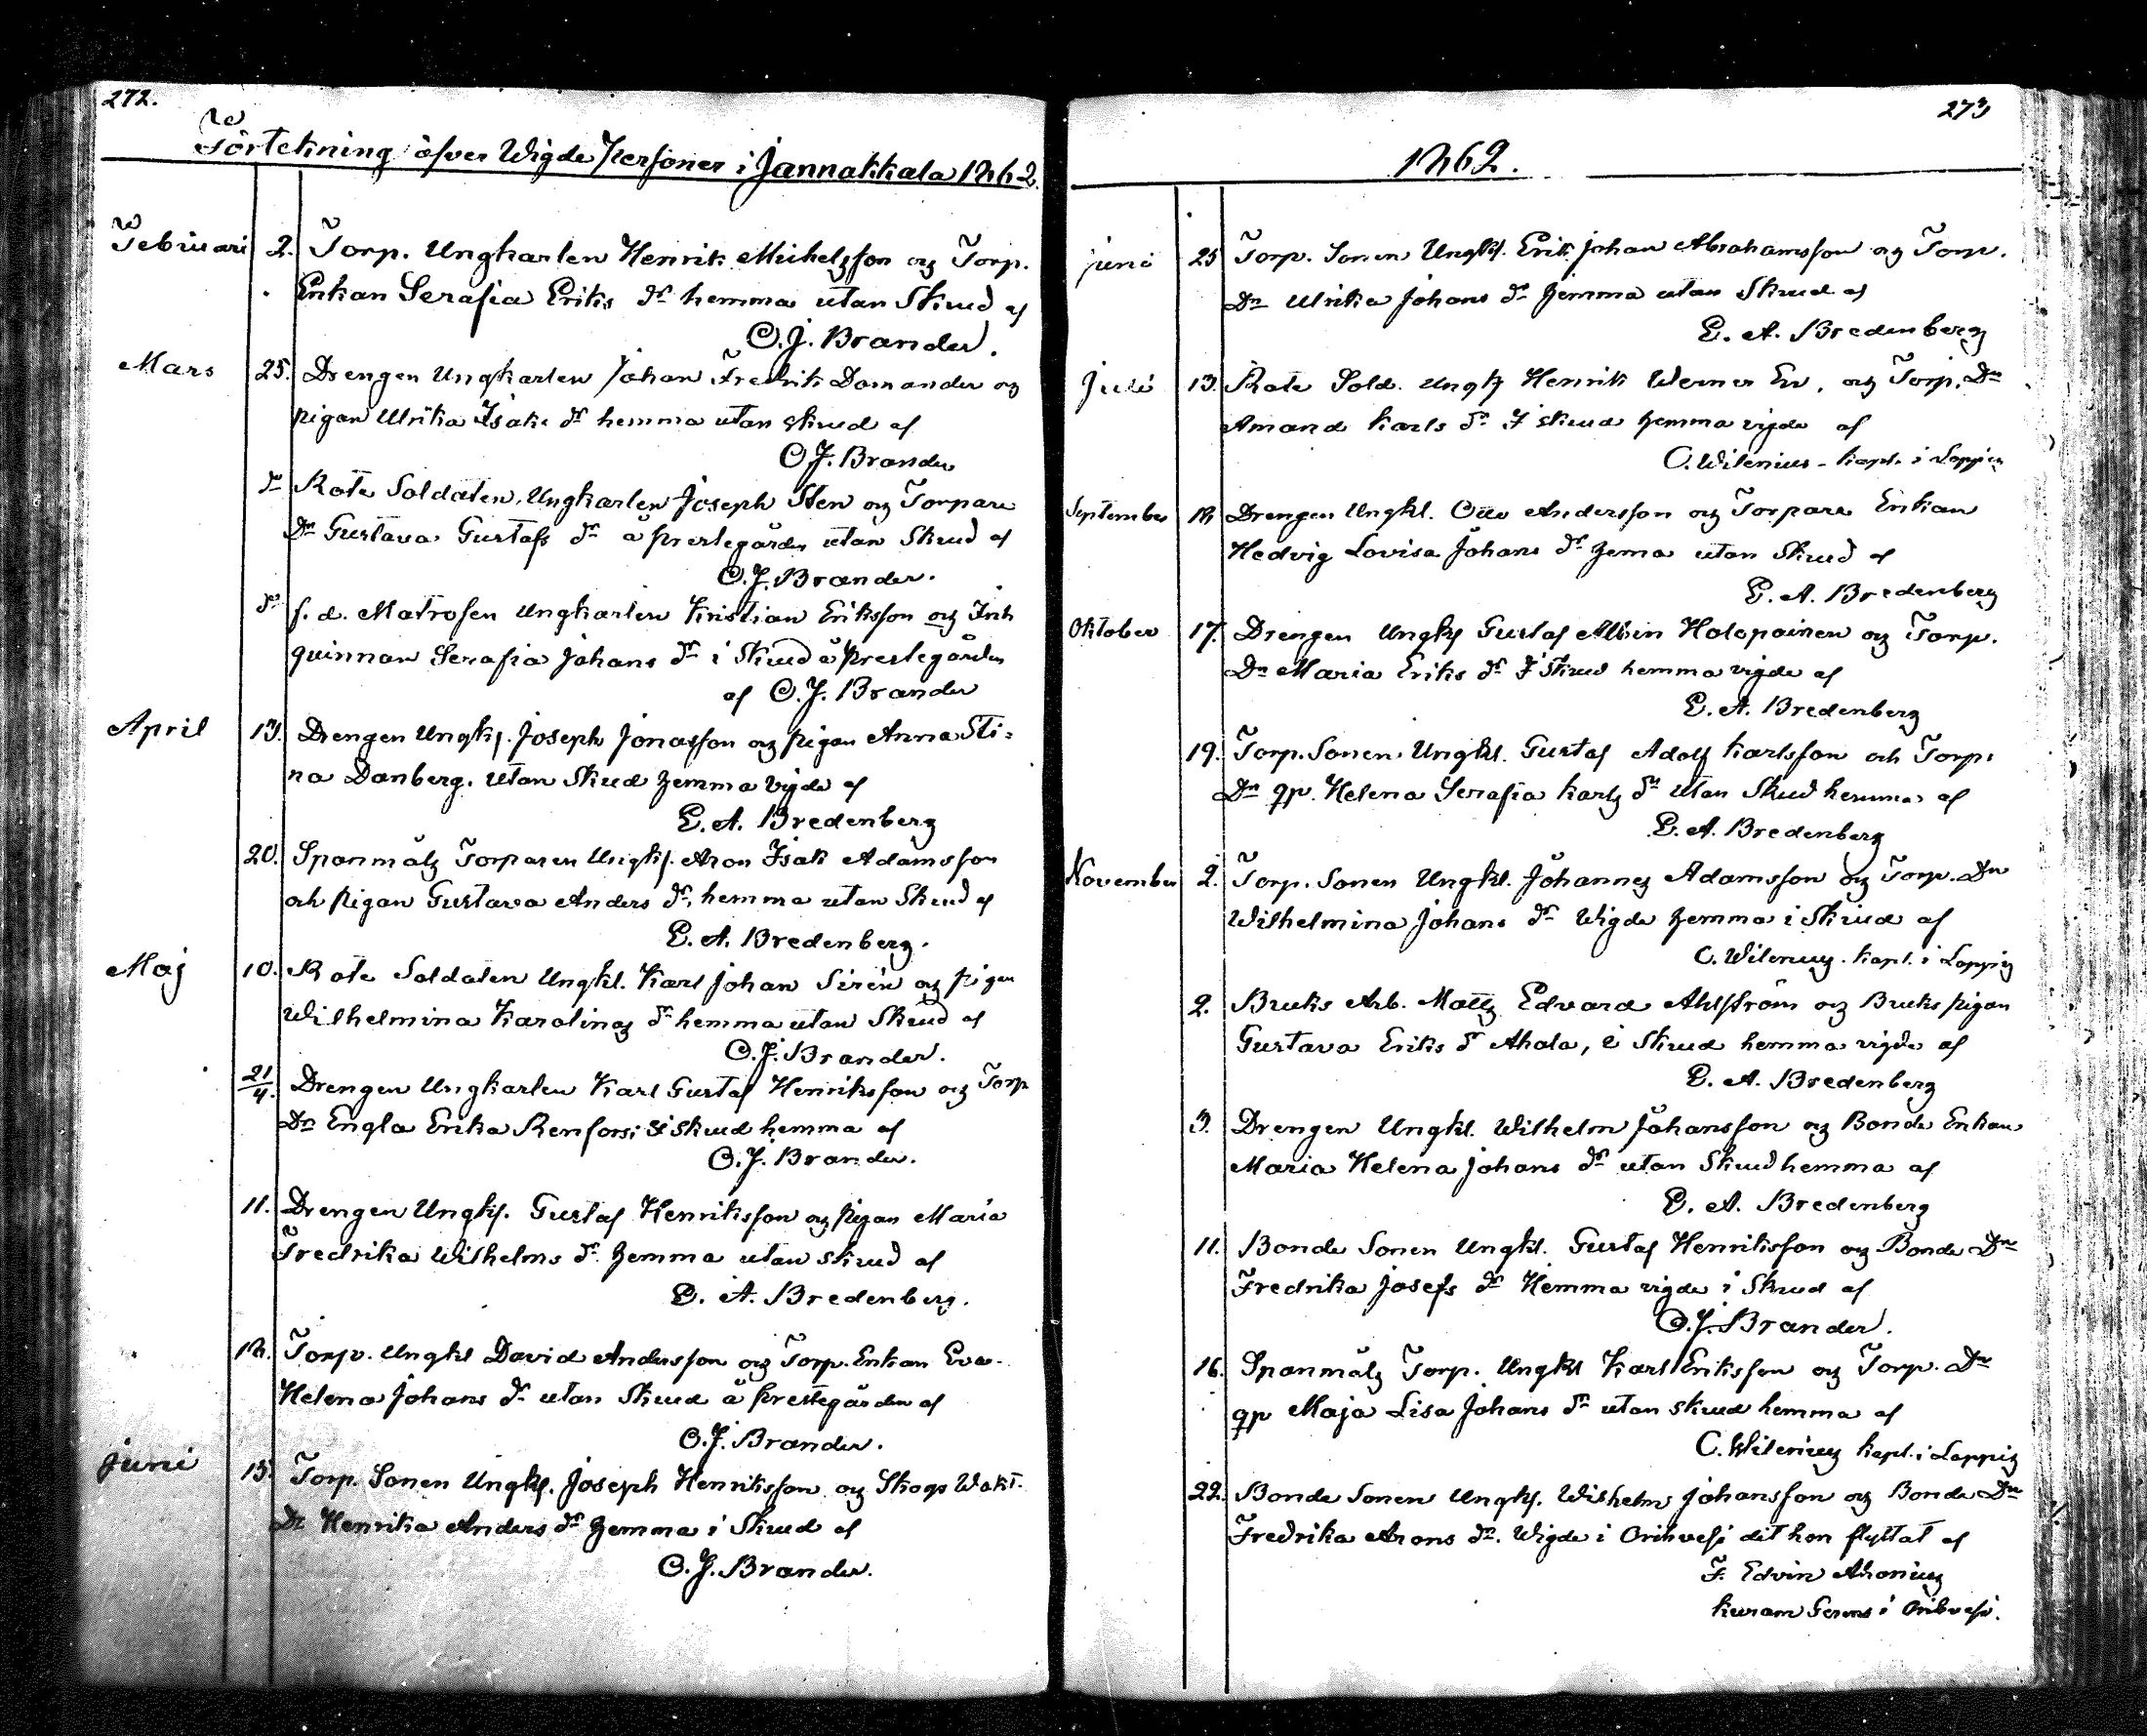 272.
Förtekning öfver Wigde Personer i Jannakkala 1862.
Februari 2. Torp. Ungkarlen Henrik Michelsson og Torp.
Enkan Serafia Eriks dr hemma utan Skrud af
O.J. Brander.
Mars 25. Drengen Ungkarlen Johan Fredrik Domander og
pigan Ulrika Isaks dr hemma utan skrud af
O.J. Brander
do Rote Soldaten, Ungkarlen Joseph Sten og Torpare
Dn Gustava Gustafs dr å prestegården utan Skrud af
O.J. Brander.
do f.d. Matrosen Ungkarlen Kristian Eriksson og Inh
quinnan Serafia Johans dr i Skrud å prestegården
af O.J. Brander
April 13. Drengen Ungkl. Joseph Jonasson og pigan Anna Sti-
na Danberg. utan Skrud hemma vigde af
E.A. Bredenberg
20. Spanmåls Torparen Ungkl. Aron Isak Adamsson
och pigan Gustava Anders dr, hemma utan Skrud af
E.A. Bredenberg.
Maj 10. Rote Soldaten Ungkl. Karl Johan Sirén og pigan
Wilhelmina Karolina dr hemma utan Skrud af
O.J. Brander.
21/4. Drengen Ungkarlen Karl Gustaf Henriksson og Torp
Dn Engla Erika Renfors i skrud hemma af
O.J. Brander.
11. Drengen Ungkl. Gustaf Henriksson og pigan Maria
Fredrika Wilhelms dr. hemma utan skrud af
E.A. Bredenberg.
18. Torp. Ungkl David Andersson og Torp. Enkan Eva
Helena Johans dr utan Skrud å prestegården af
O.J. Brander.
Juni 15. Torp. Sonen Ungkl. Joseph Henriksson og Skogs Wakt.
Dr Henrika Anders dr hemma i Skrud af
O.J. Brander.
273
1862.
Juni 25 Torp. Sonen Ungkl. Erik Johan Abrahamsson og Torp.
Dn Ulrika Johans dr hemma utan Skrud af
E.A. Bredenberg
Juli 13. Rote Sold. Ungkl Henrik Werner En, og Torp. Dn
Amanda Karls dr I skrud hemma vigde af
C. Wilenius - Kapl. i Loppis
September 18 Drengen Ungkl. Otto Andersson og Torpare Enkan
Hedvig Lovisa Johans dr hema utan Skrud af
E.A. Bredenberg
Oktober 17. Drengen Ungkl Gustaf Albin Holopainen og Torp.
Dn Maria Eriks dr I Skrud hemma vigde af
E.A. Bredenberg
19. Torp. Sonen Ungkl. Gustaf Adolf Karlsson och Torp.
Dn qp. Helena Serafia Karls dr utan Skrud hemma af
E.A. Bredenberg
November 2. Torp. Sonen Ungkl. Johannes Adamsson og Torp. Dn
Wilhelmina Johans dr Wigde hemma i Skrud af
C. Wilenius. Kapl. i Loppis
2. Bruks Arb. Matts Edvard Ahlström og Bruks pigan
Gustava Eriks dr Ahola, i Skrud hemma vigde af
E.A. Bredenberg
3. Drengen Ungkl. Wilhelm Johansson og Bonde Enkan
Maria Helena Johans dr utan Skrud hemma af
E.A. Bredenberg
11. Bonde Sonen Ungkl. Gustaf Henriksson og Bonde Dn
Fredrika Josefs dr Hemma vigde i Skrud af
O.J. Brander.
16. Spanmåls Torp. Ungkl Karl Eriksson og Torp. Dn
qp Maja Lisa Johans dr utan skrud hemma af
C. Wilenius Kapl. i Loppis
22. Bonde Sonen Ungkl. Wilhelm Johansson og Bonde Dn
Fredrika Arons dr. Wigde i Orihvesi dit hon flyttat af
F. Edvin
i Orihvesi.